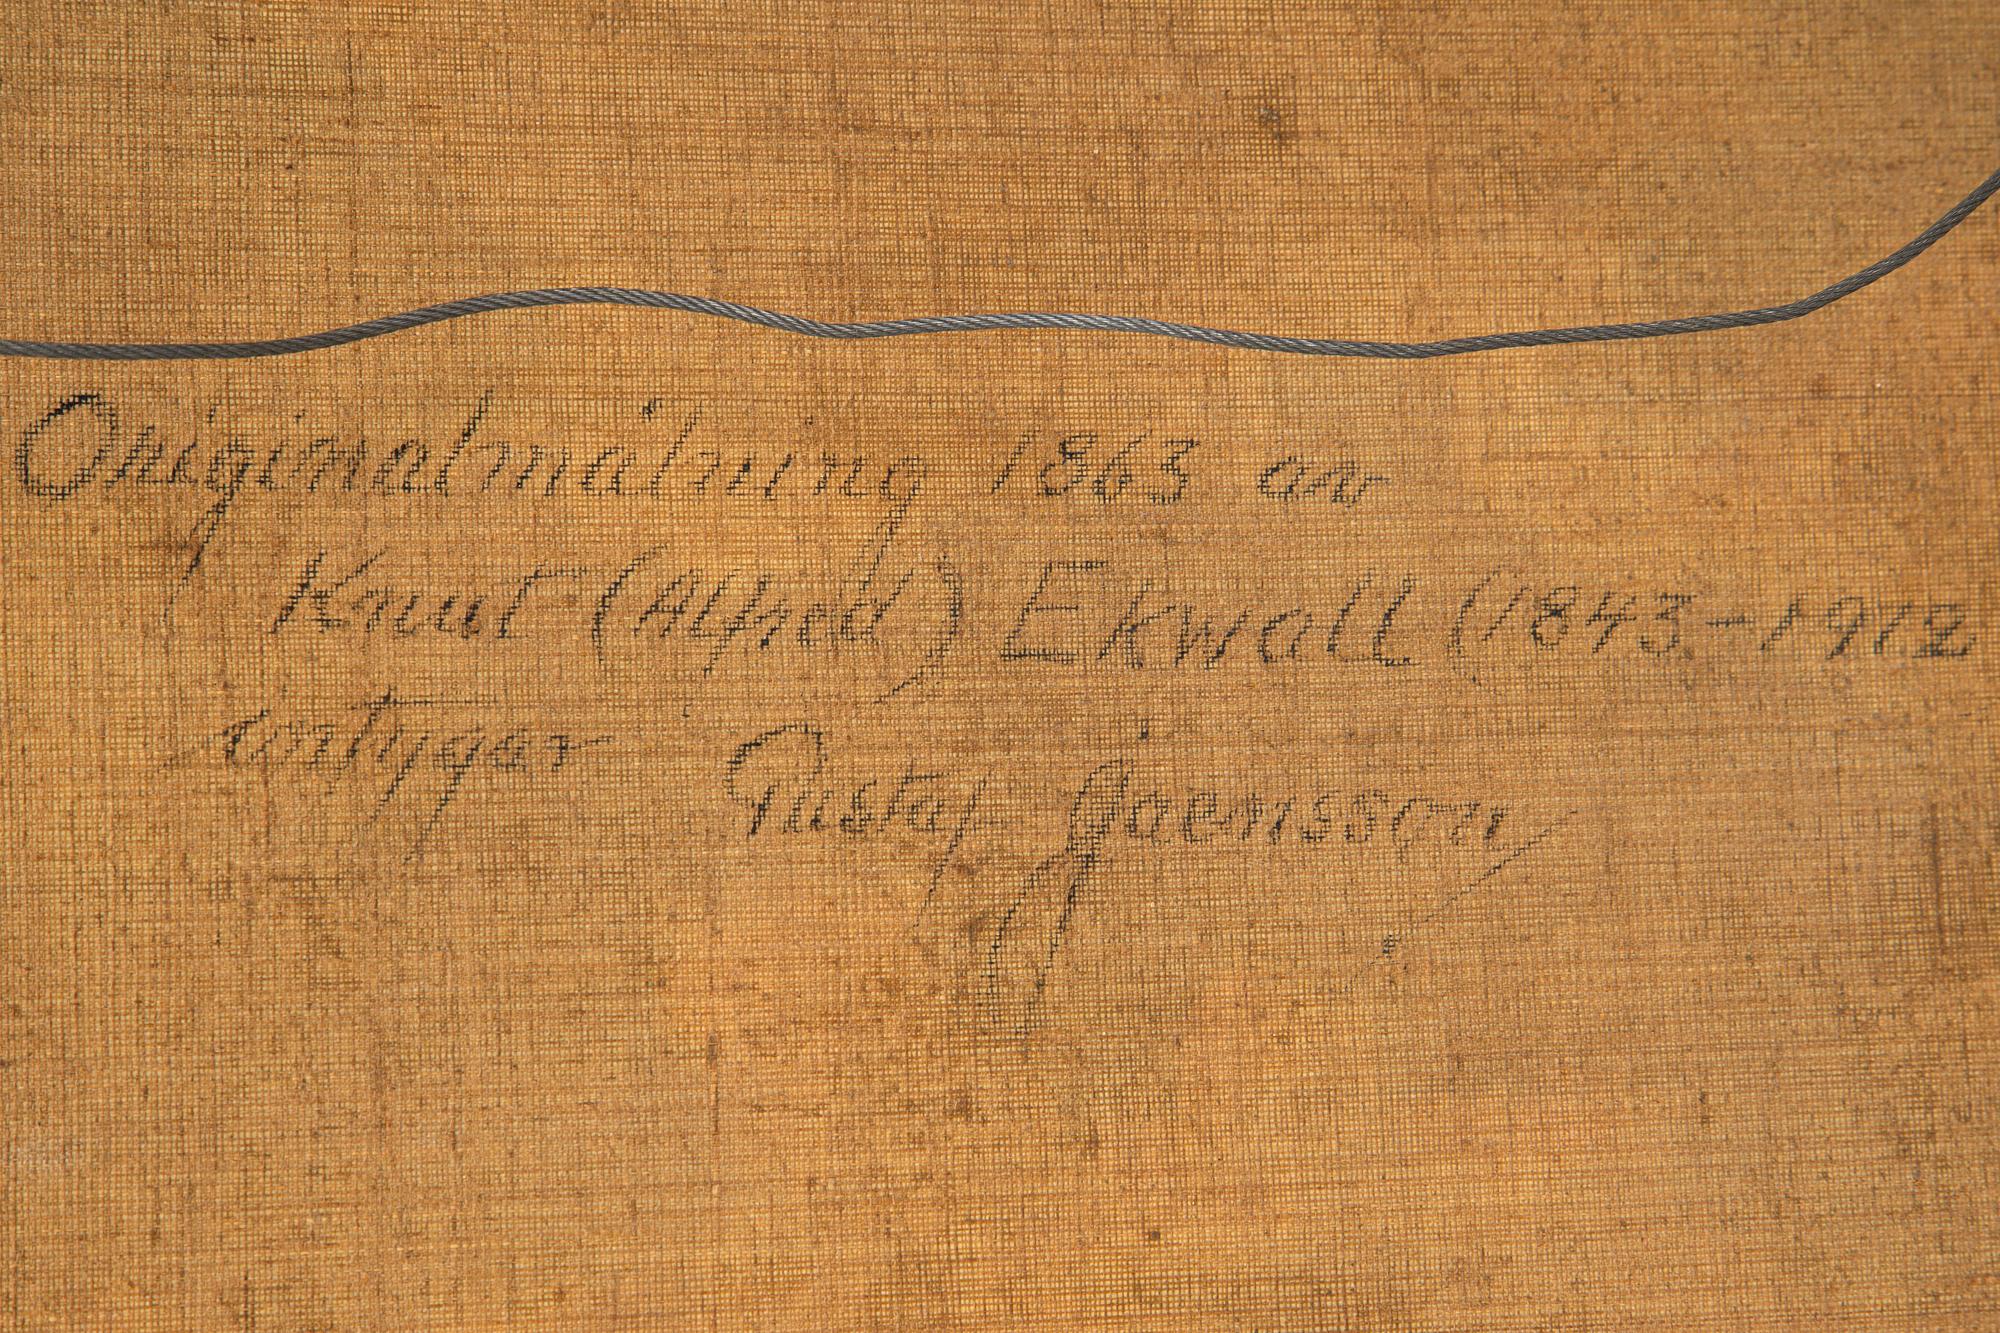 Originalmålning 1863 av
Knut (Alfred) Ekwall (1843-1912
intygar Gustaf Jaensson